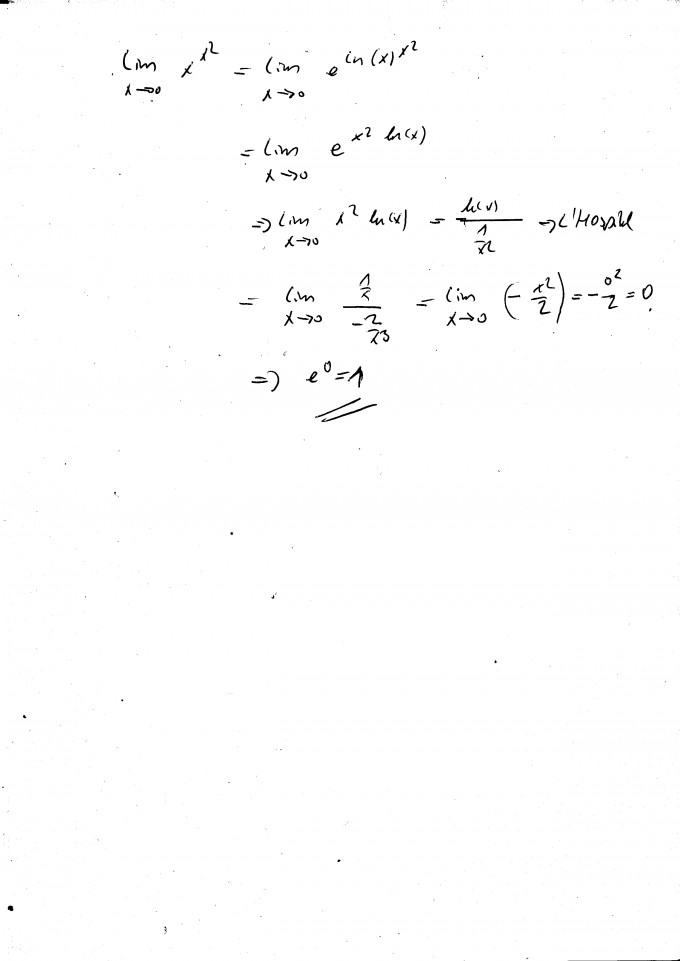 lim x→0 x^x^2 = lim x→0 e^ln(x)^x^2
= lim x→0 e^x^2 ln(x)
=> lim x→0 x^2 ln(x) = ln(x)/(1/x^2) → L'Hospital
= lim x→0 (1/x)/(-2/x^3) = lim x→0 (- x^2/2) = - 0^2/2 = 0
=> e^0 = 1